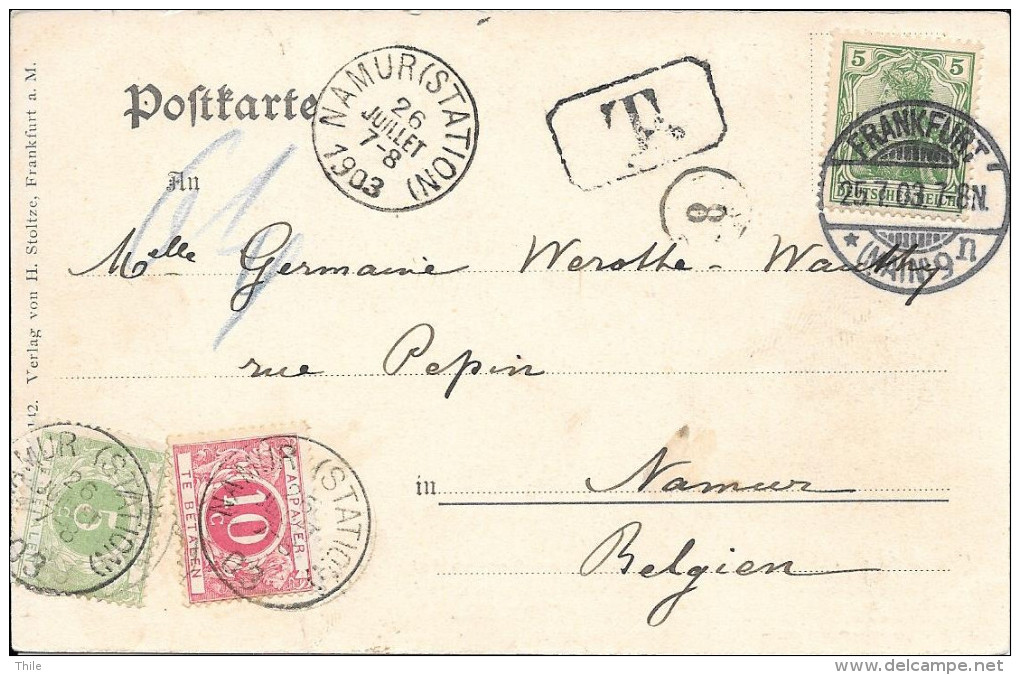 Postkarte
An
NAMUR (STATION)
26
JUILLET
7-8
1903
T.
8
5 5
DEUTSCHES REICH
FRANKFURT
25.7.03.7-8N.
* (MAIN) 9 n
Melle Germaine Werotte-Wauthy
rue Pepin
in Namur
Belgien
Verlag von H. Stoltze, Frankfurt a. M.
NAMUR (STATION)
26
5
03
A PAYER
10
c
TE BETALEN
NAMUR (STATION)
03
Thile
delcampe.net